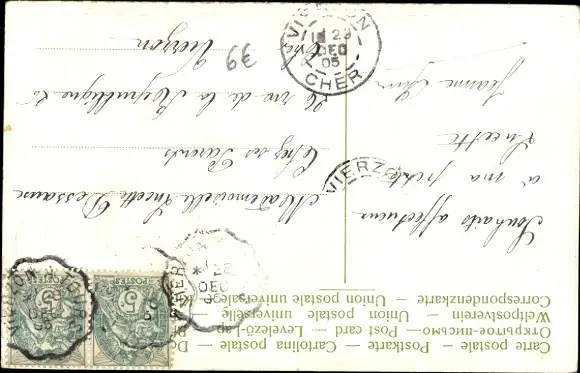 Carte postale — Postkarte — Cartolina postale — Do
Открытое письмо — Post card — Levelező-Lap
Weltpostverein — Union postale universelle —
Correspondenzkarte — Union postale universelle
Souhaits affectueux
à ma petite
Lucette
Jeanne
Mademoiselle Lucette Dessaux
chez ses Parents
26 rue de la République 26
Vierzon
39
VIERZON
1 29
DEC
05
CHER
VIERZO
28
DEC
05
VIERZON * TOURS
DEC
05
5
5
POSTES